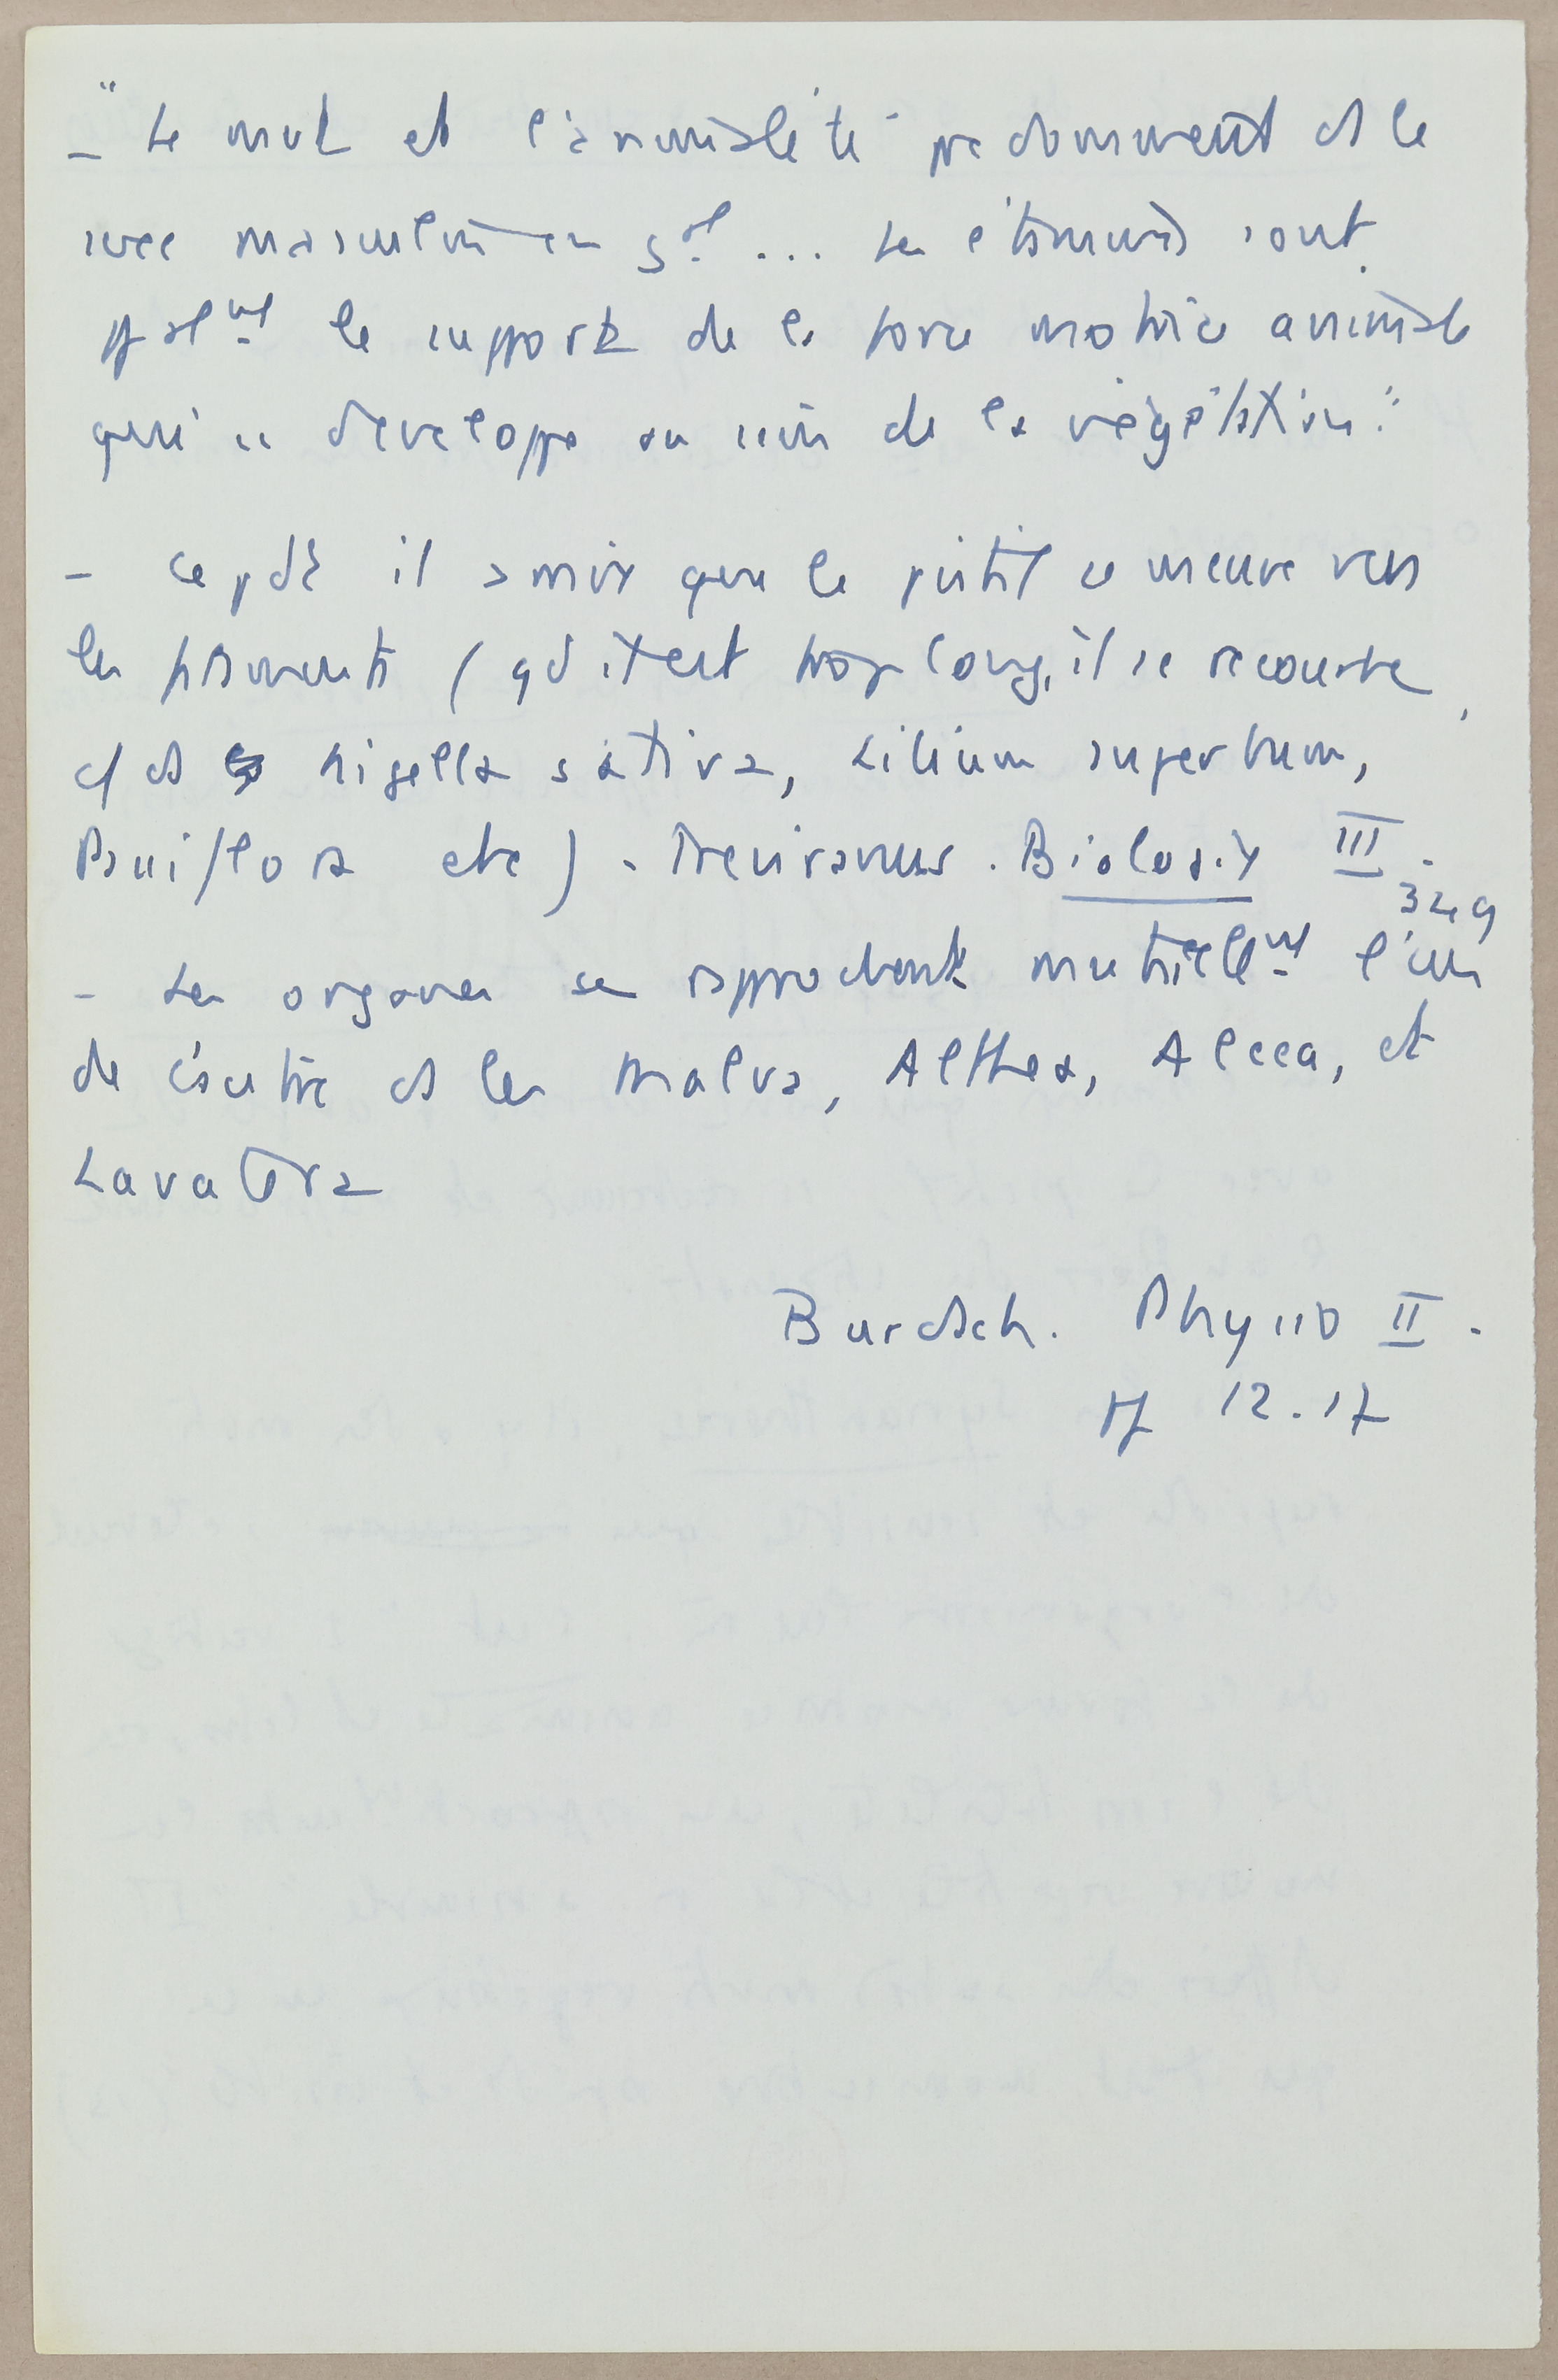 – "Le mvt et l'animalité" prédominent ds le
sexe masculin en gal ... Les étamines sont
ppalmt le support de la force motrice animale
qui se développe au sein de la végétation."
– Cepdt il arrive que le pistil se meuve vers
les étamines (qd il est trop long, il se recourbe,
c/ ds Nigella sativa, Lilium superbum,
Passiflora etc) – Treviranus. Biologie III.
349
– Les organes se rapprochent mutuellemt l'un
de l'autre ds les Malva, Althea, Alcea, et
Lavatera
Burdach. Physio II.
pp 12.17